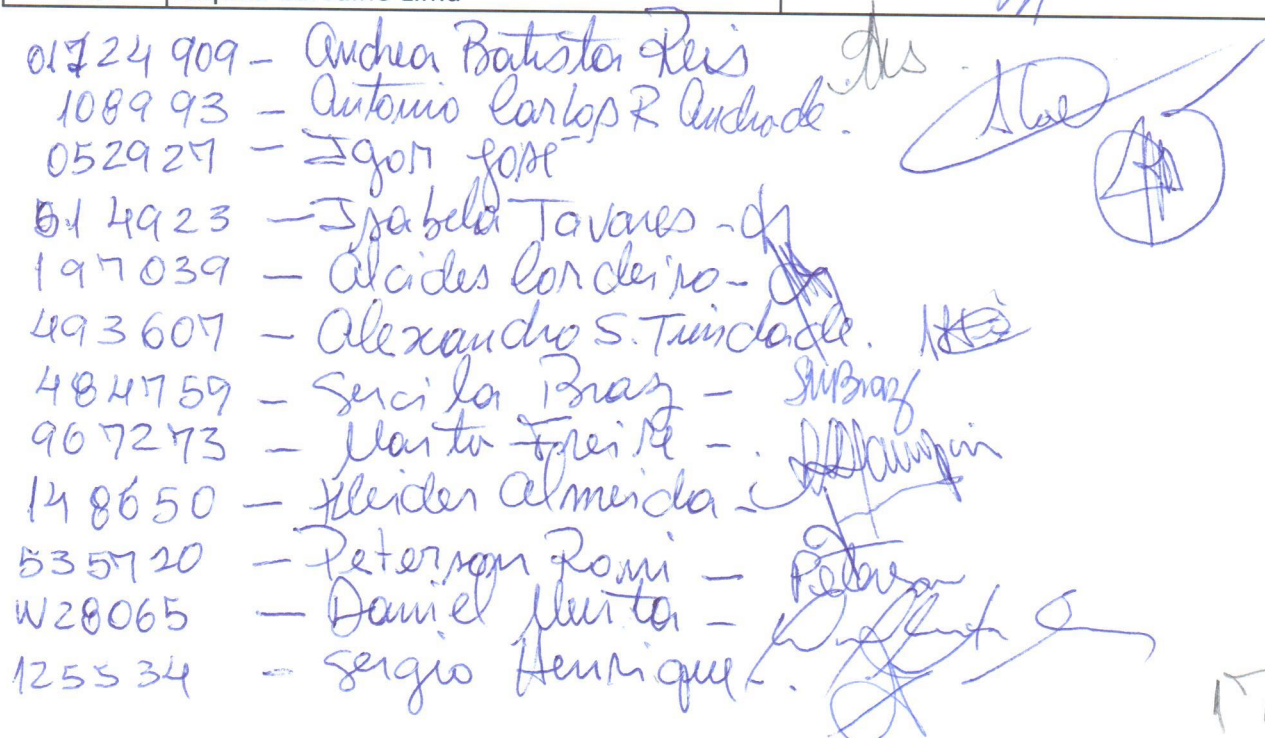 Lima
01724 909 - Andrea Batista Reis
108993 - Antonio Carlos R Andrade.
052927 - Igor José
514923 - Isabela Tavares -
197039 - Alcides Cordeiro -
493607 - Alexandro S. Trindade.
484759 - Gercila Braz - SMBraz
967273 - Marta Freire -
148650 - Kleider Almeida -
535720 - Peterson Roni - Peterson
W28065 - Daniel Murta -
125534 - Sergio Henrique -.